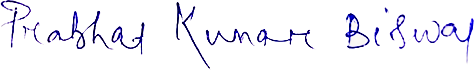 Prabhat Kumar Biswas